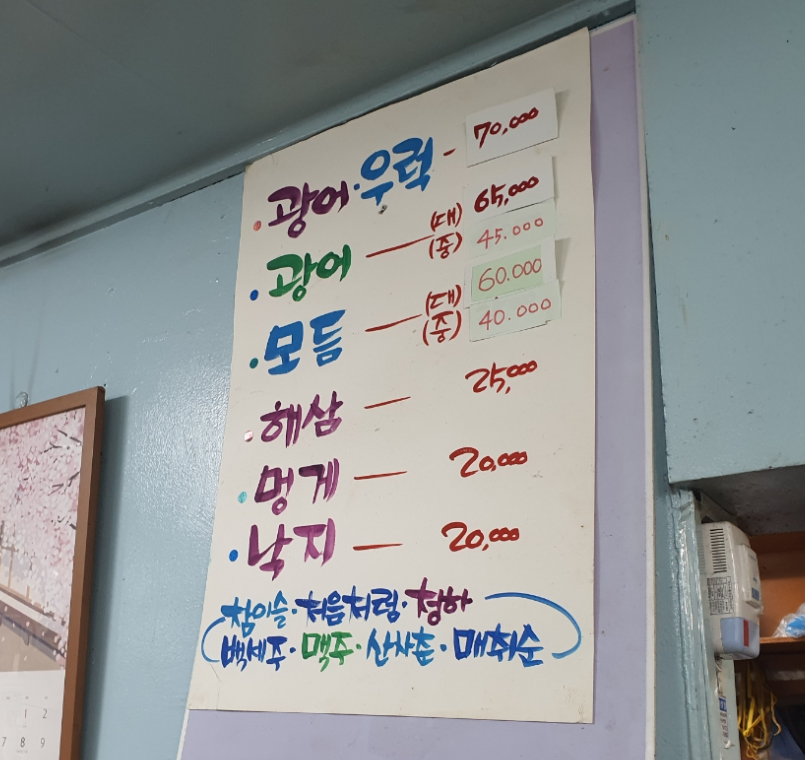 · 광어·우럭 - 70,000
· 광어 — (대) 65,000
(중) 45.000
· 모듬 — (대) 60.000
(중) 40.000
· 해삼 — 25,000
· 멍게 — 20,000
· 낙지 — 20,000
참이슬·처음처럼·청하
백세주·맥주·산사춘·매취순
1 2
7 8 9